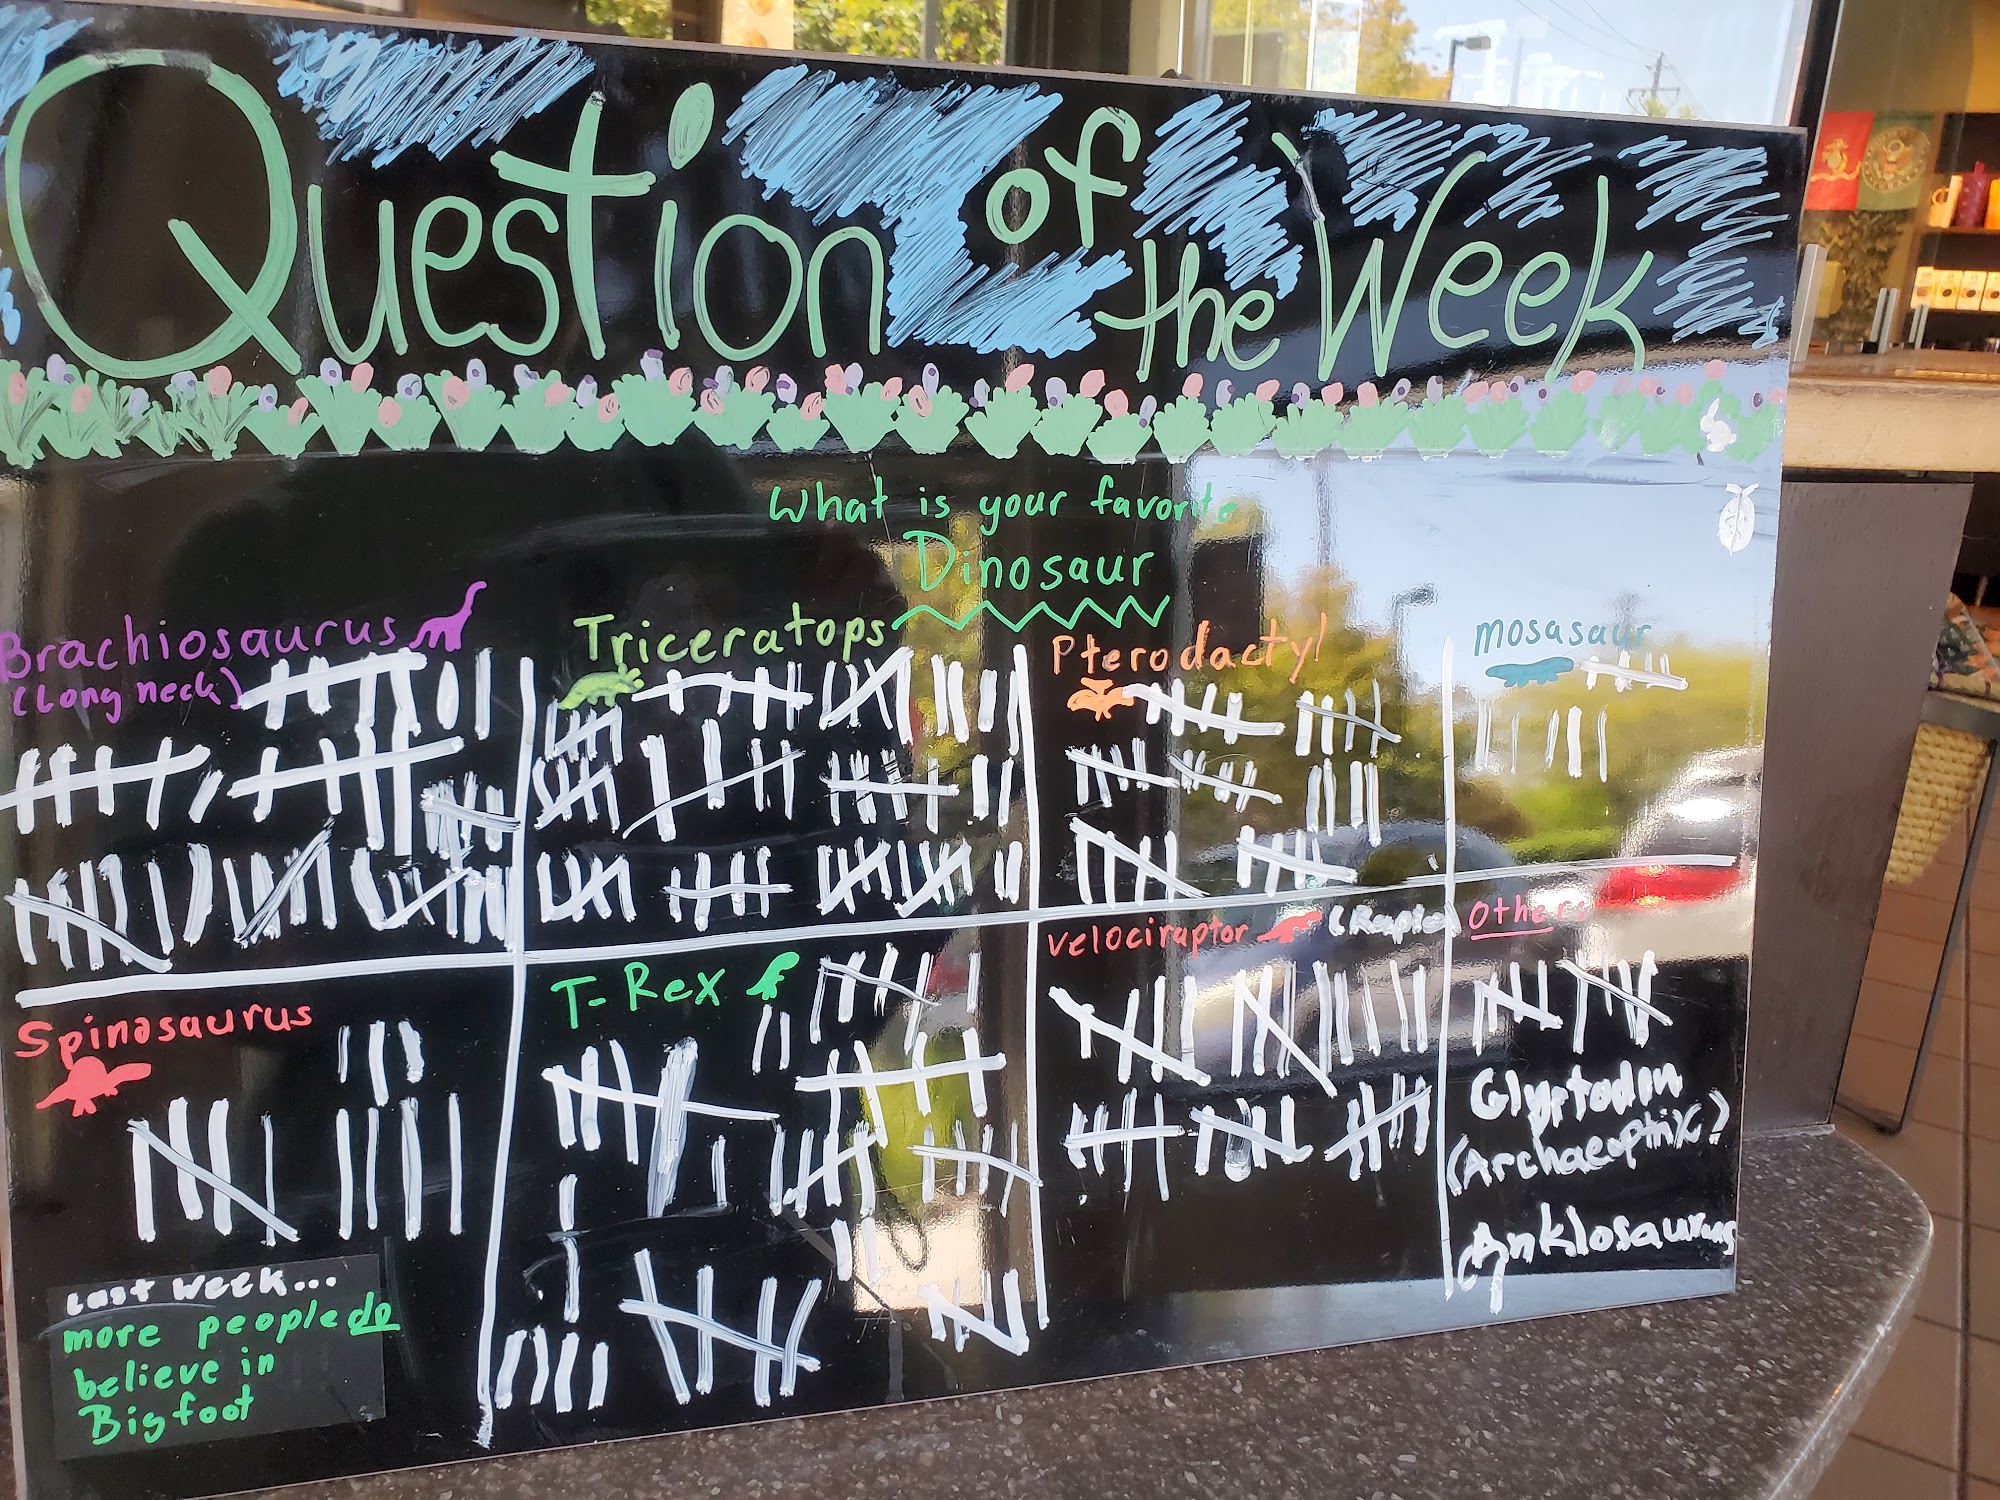 Question of the Week
What is your favorite
Dinosaur
Brachiosaurus
(Long neck)
Triceratops
Pterodactyl
Mosasaur
Spinosaurus
T-Rex
Velociraptor
Other
Glyptodon
(Archaeoptrix?)
Anklosaurus
Last week...
more people do
believe in
Bigfoot